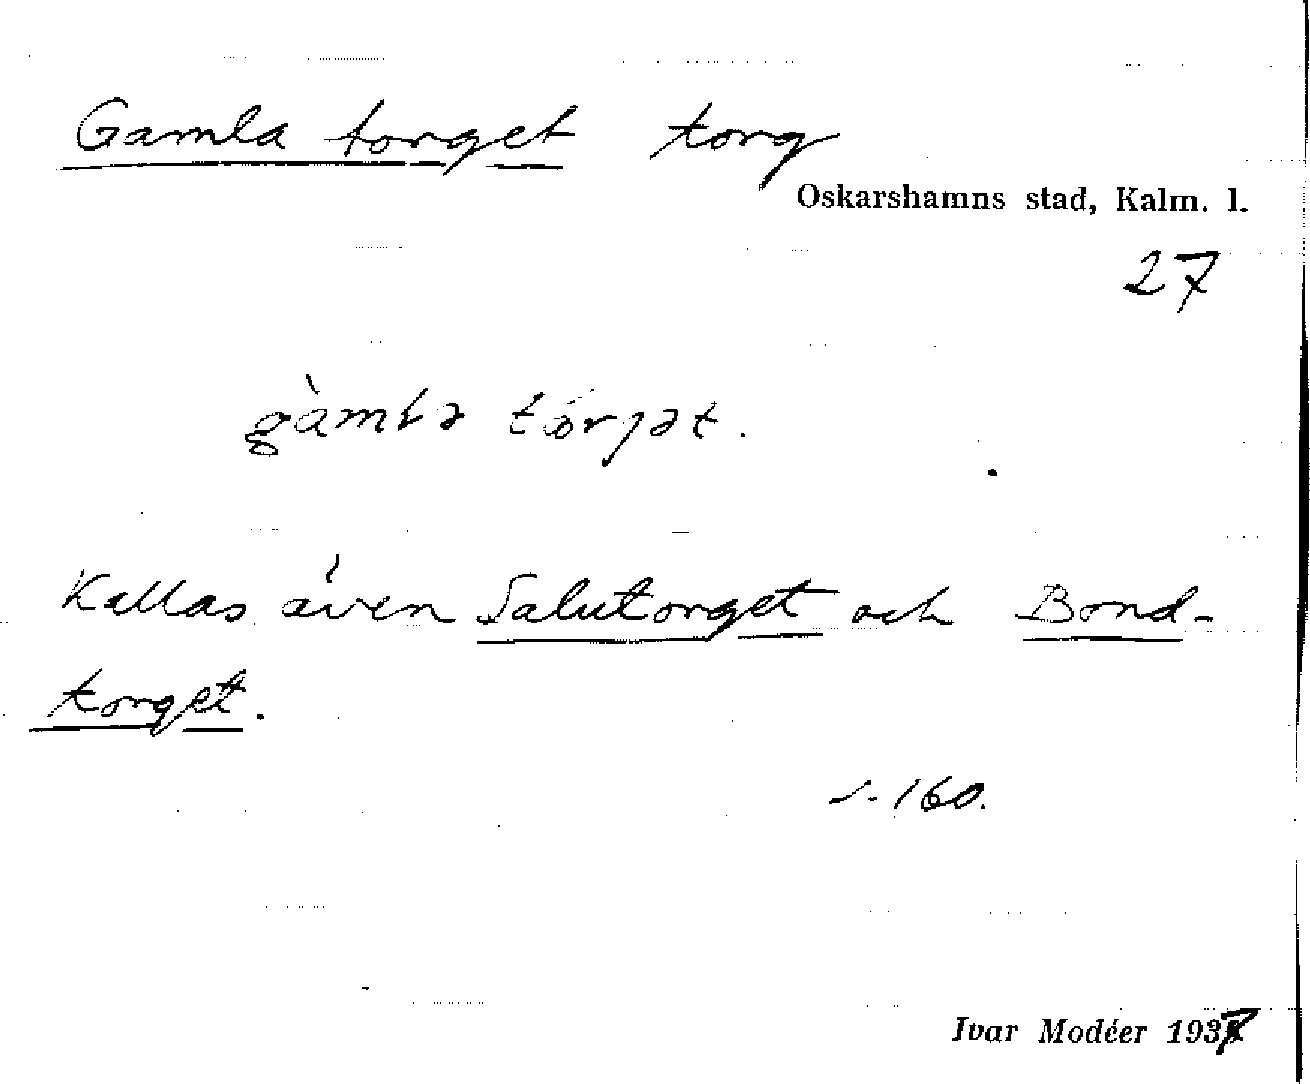 Gamla torget torg
Oskarshamns stad, Kalm. l.
27
gàmla tórjət.
Kallas även Salutorget och Bond-
torget.
s. 160.
Ivar Modéer 1937